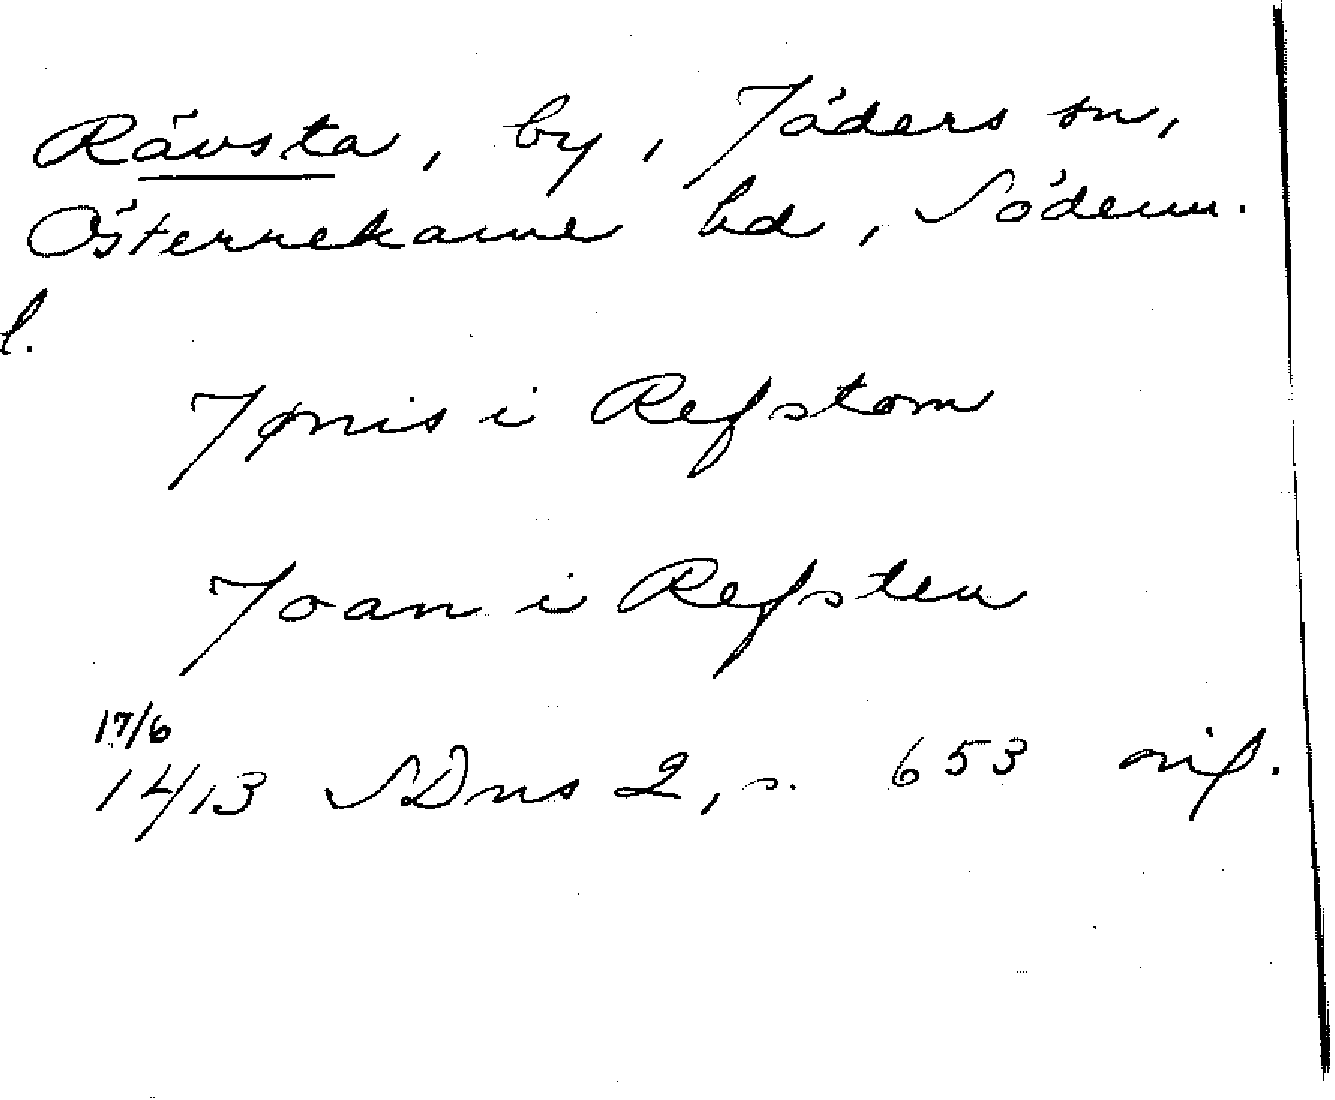 Rävsta, by, Jäders sn,
Österrekarne hd, Söderm.
l.
Jønis i Refstom
Joan i Refsten
17/6
1413 SDns 2, s. 653 nif.